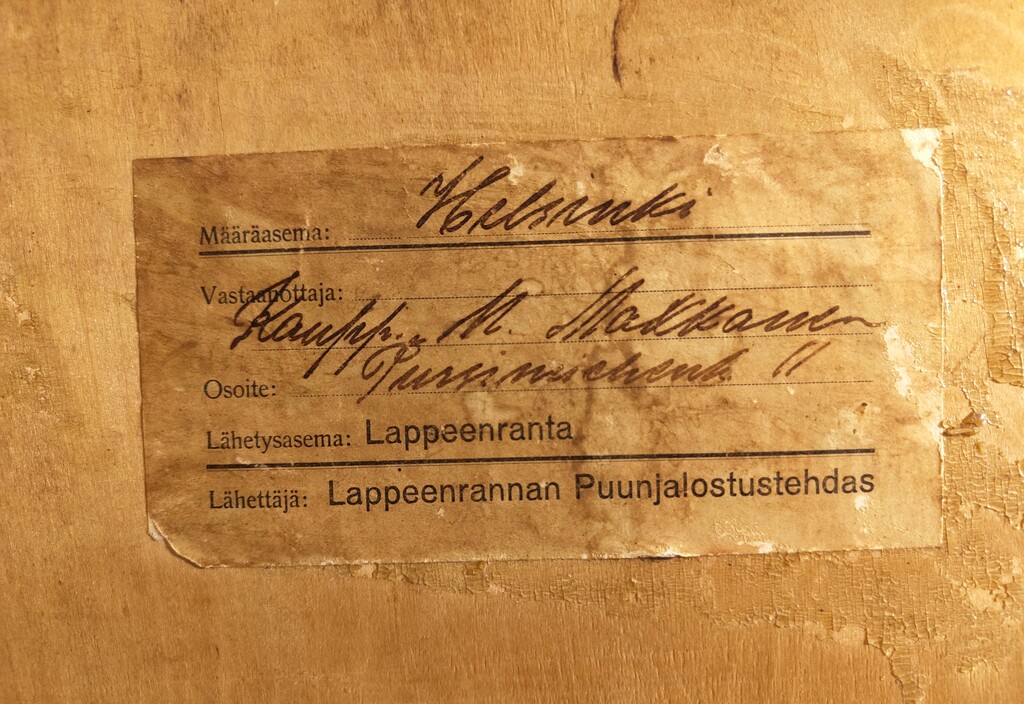 Määräasema: Helsinki
Vastaanottaja:
Kaupp. M. Makkanen
Osoite: Pursimiehenk 11
Lähetysasema: Lappeenranta
Lähettäjä: Lappeenrannan Puunjalostustehdas